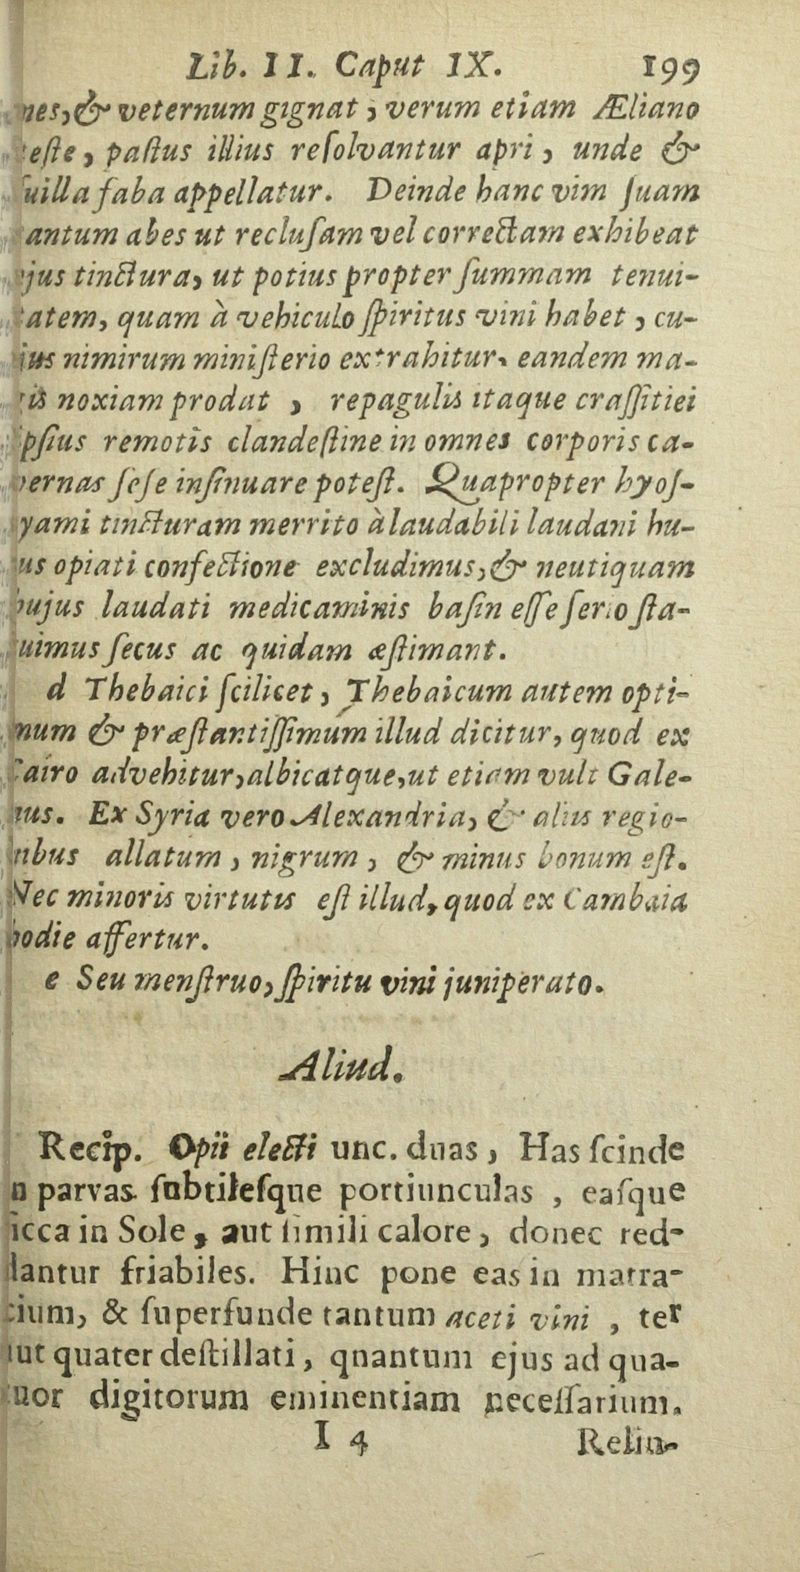 Lib. II. Caput IX. 199
nes,& veternum gignat, verum etiam Æliano
teſte, paſtus illius reſolvantur apri, unde &
ſuilla faba appellatur. Deinde hanc vim ſuam
tantum abes ut recluſam vel correctam exhibeat
ejus tinctura, ut potius propter ſummam tenui-
tatem, quam à vehiculo ſpiritus vini habet, cu-
ius nimirum miniſterio extrahitur, eandem ma-
gis noxiam prodat, repagulis itaque craſſitiei
ipſius remotis clandeſtine in omnes corporis ca-
vernas ſeſe inſinuare poteſt. Quapropter hyoſ-
yami tincturam merrito à laudabili laudani hu-
jus opiati confectione excludimus,& neutiquam
hujus laudati medicaminis baſin eſſe ferio ſta-
tuimus ſecus ac quidam æſtimant.
d Thebaici ſcilicet, Thebaicum autem opti-
mum & præſtantiſſimum illud dicitur, quod ex
Cairo advehitur,albicatque,ut etiam vult Gale-
nus. Ex Syria vero Alexandria, & aliis regio-
nibus allatum, nigrum, & minus bonum eſt.
Nec minoris virtutis eſt illud, quod ex Cambaia
hodie affertur.
e Seu menſtruo, ſpiritu vini juniperato.
Aliud.
Recip. Opii electi unc. duas, Has ſcinde
in parvas ſubtileſque portiunculas , eaſque
ſicca in Sole, aut ſimili calore, donec red-
dantur friabiles. Hinc pone eas in matra-
cium, & ſuperfunde tantum aceti vini , ter
aut quater deſtillati, quantum ejus ad qua-
tuor digitorum eminentiam neceſſarium.
I 4 Reliu-